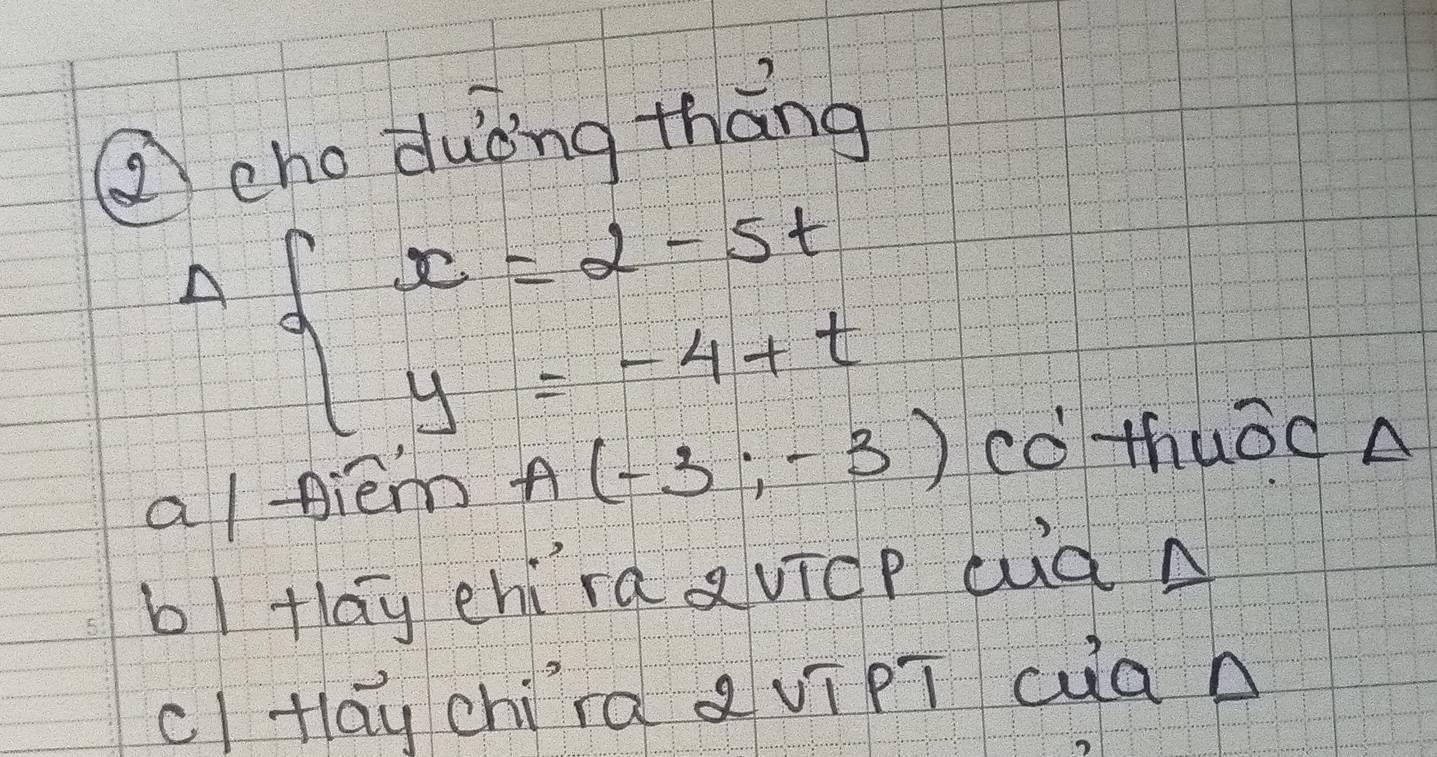 ② cho đường thẳng
Δ { x = 2 - 5t
y = -4 + t
a/ Điểm A (-3 ; -3) có thuộc Δ
b/ Hãy chỉ ra 2 VTCP của Δ
c/ Hãy chỉ ra 2 VTPT của Δ